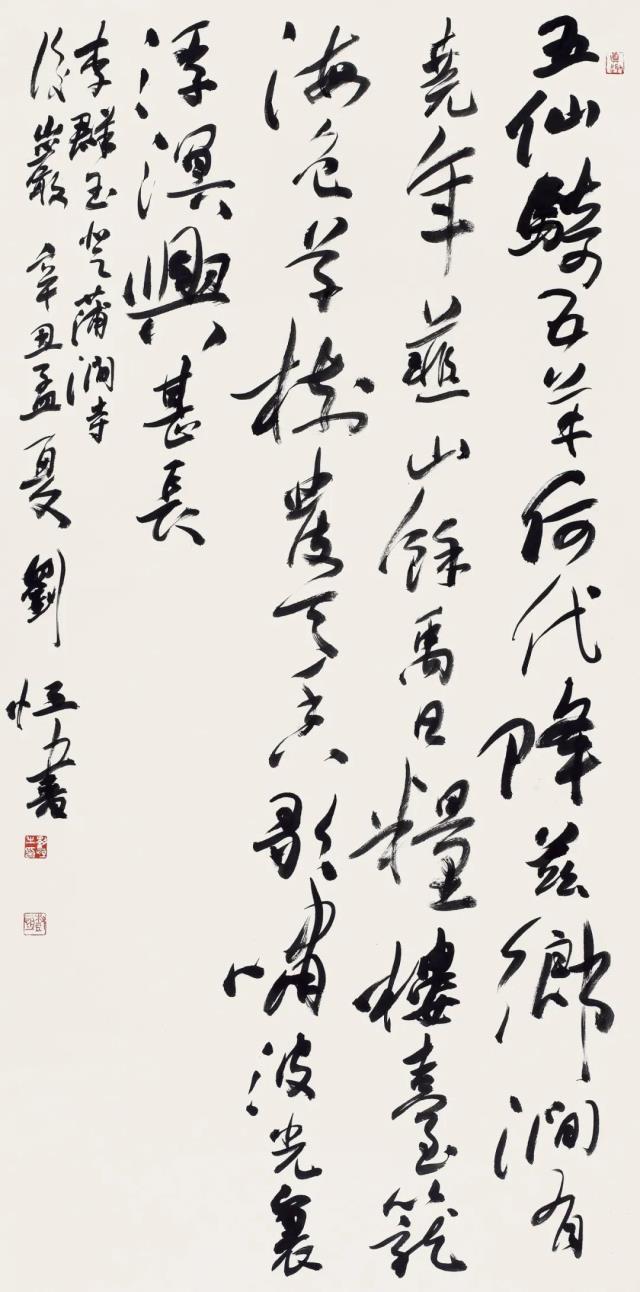 五仙騎五羊何代降茲鄉澗有
堯年韮山餘禹日糧樓臺籠
海色草樹發天香歌嘯波光裏
浮溟興甚長
李群玉登蒲澗寺
後巖 辛丑孟夏 劉恒書